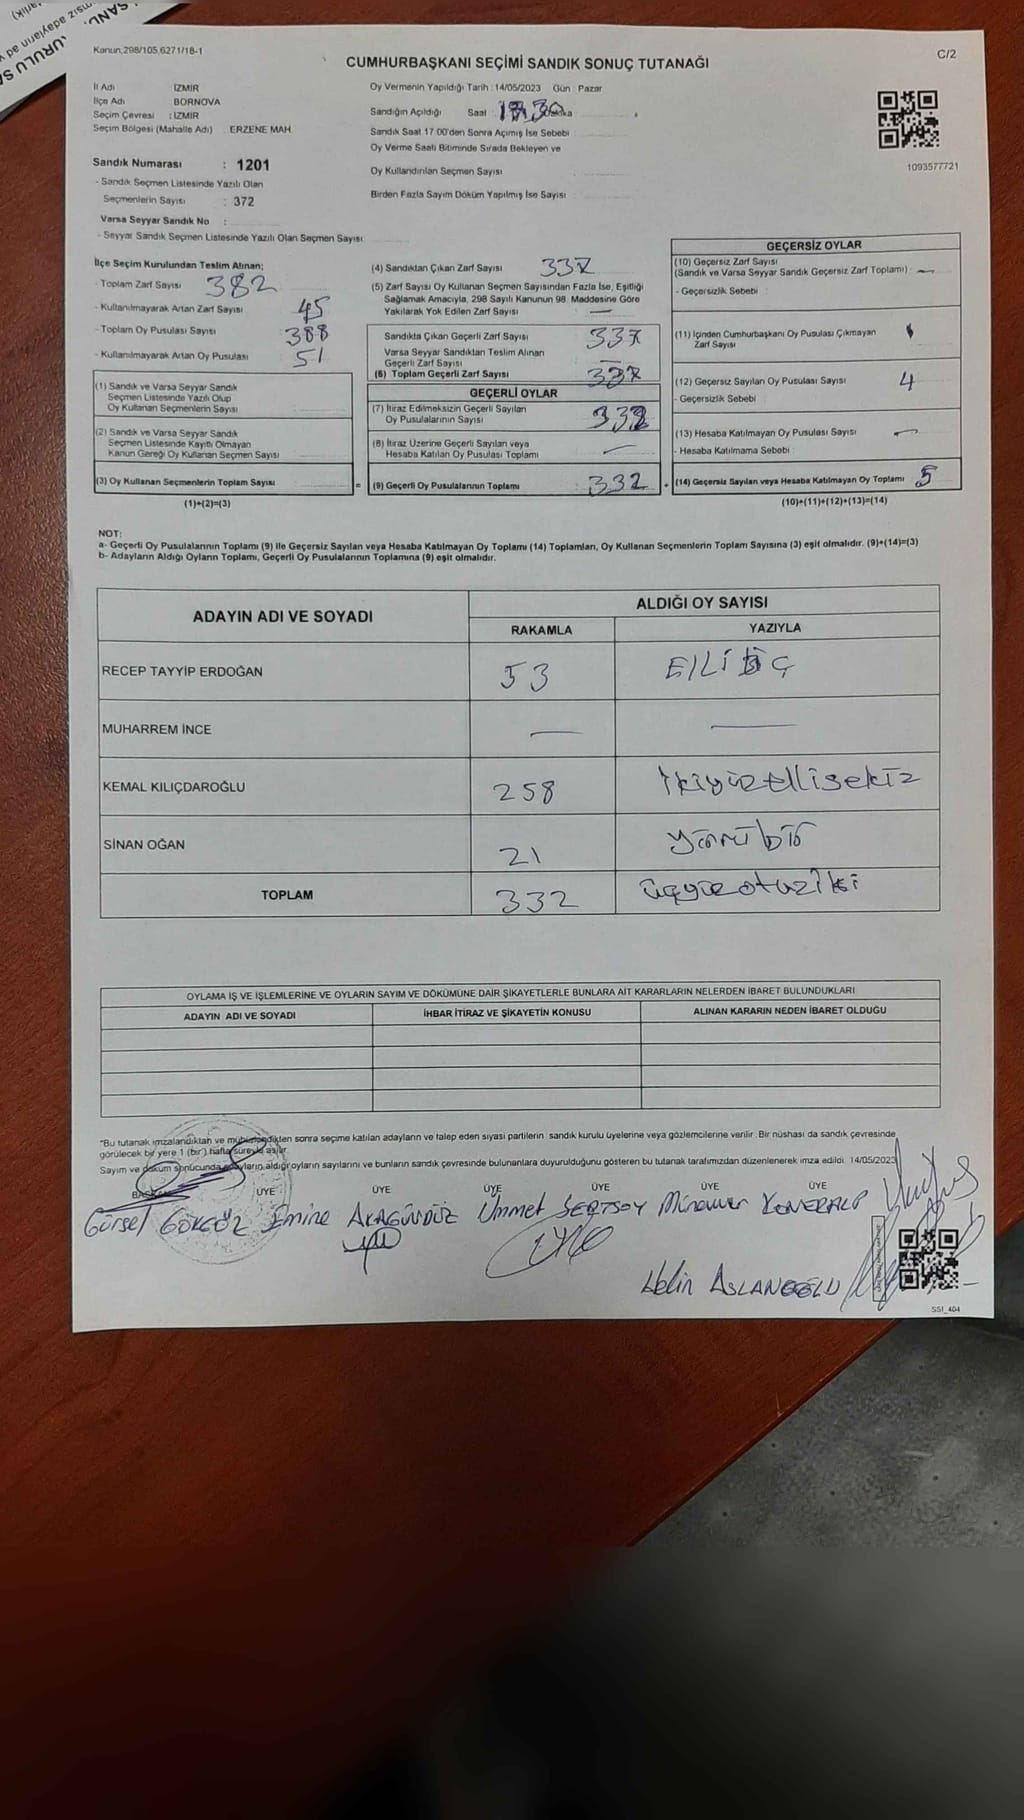 Kanun,298/105,6271/18-1
C/2
CUMHURBAŞKANI SEÇİMİ SANDIK SONUÇ TUTANAĞI
İl Adı İZMİR
İlçe Adı BORNOVA
Seçim Çevresi : İZMİR
Seçim Bölgesi (Mahalle Adı) ERZENE MAH.
Sandık Numarası : 1201
- Sandık Seçmen Listesinde Yazılı Olan
Seçmenlerin Sayısı : 372
Varsa Seyyar Sandık No :
- Seyyar Sandık Seçmen Listesinde Yazılı Olan Seçmen Sayısı:
Oy Vermenin Yapıldığı Tarih : 14/05/2023 Gün : Pazar
Sandığın Açıldığı Saat
Sandık Saat 17.00'den Sonra Açılmış İse Sebebi
Oy Verme Saati Bitiminde Sırada Bekleyen ve
Oy Kullandırılan Seçmen Sayısı
Birden Fazla Sayım Döküm Yapılmış İse Sayısı
1093577721
İlçe Seçim Kurulundan Teslim Alınan;
- Toplam Zarf Sayısı 382
- Kullanılmayarak Artan Zarf Sayısı 45
- Toplam Oy Pusulası Sayısı 388
- Kullanılmayarak Artan Oy Pusulası 51
(1) Sandık ve Varsa Seyyar Sandık
Seçmen Listesinde Yazılı Olup
Oy Kullanan Seçmenlerin Sayısı
(2) Sandık ve Varsa Seyyar Sandık
Seçmen Listesinde Kayıtlı Olmayan
Kanun Gereği Oy Kullanan Seçmen Sayısı
(3) Oy Kullanan Seçmenlerin Toplam Sayısı =
(1)+(2)=(3)
(4) Sandıktan Çıkan Zarf Sayısı : 337
(5) Zarf Sayısı Oy Kullanan Seçmen Sayısından Fazla İse, Eşitliği
Sağlamak Amacıyla, 298 Sayılı Kanunun 98. Maddesine Göre
Yakılarak Yok Edilen Zarf Sayısı : —
Sandıkta Çıkan Geçerli Zarf Sayısı : 337
Varsa Seyyar Sandıktan Teslim Alınan
Geçerli Zarf Sayısı : —
(6) Toplam Geçerli Zarf Sayısı : 337
GEÇERLİ OYLAR
(7) İtiraz Edilmeksizin Geçerli Sayılan
Oy Pusulalarının Sayısı : 332
(8) İtiraz Üzerine Geçerli Sayılan veya
Hesaba Katılan Oy Pusulası Toplamı : —
(9) Geçerli Oy Pusulalarının Toplamı : 332 +
GEÇERSİZ OYLAR
(10) Geçersiz Zarf Sayısı
(Sandık ve Varsa Seyyar Sandık Geçersiz Zarf Toplamı) : —
- Geçersizlik Sebebi :
(11) İçinden Cumhurbaşkanı Oy Pusulası Çıkmayan 1
Zarf Sayısı
(12) Geçersiz Sayılan Oy Pusulası Sayısı 4
- Geçersizlik Sebebi
(13) Hesaba Katılmayan Oy Pusulası Sayısı : —
- Hesaba Katılmama Sebebi :
(14) Geçersiz Sayılan veya Hesaba Katılmayan Oy Toplamı : 5
(10)+(11)+(12)+(13)=(14)
NOT:
a- Geçerli Oy Pusulalarının Toplamı (9) ile Geçersiz Sayılan veya Hesaba Katılmayan Oy Toplamı (14) Toplamları, Oy Kullanan Seçmenlerin Toplam Sayısına (3) eşit olmalıdır. (9)+(14)=(3)
b- Adayların Aldığı Oyların Toplamı, Geçerli Oy Pusulalarının Toplamına (9) eşit olmalıdır.
ADAYIN ADI VE SOYADI ALDIĞI OY SAYISI
RAKAMLA YAZIYLA
RECEP TAYYİP ERDOĞAN 53 Elli üç
MUHARREM İNCE — —
KEMAL KILIÇDAROĞLU 258 ikiyüzellisekiz
SİNAN OĞAN 21 yirmi bir
TOPLAM 332 üçyüzotuziki
OYLAMA İŞ VE İŞLEMLERİNE VE OYLARIN SAYIM VE DÖKÜMÜNE DAİR ŞİKAYETLERLE BUNLARA AİT KARARLARIN NELERDEN İBARET BULUNDUKLARI
ADAYIN ADI VE SOYADI İHBAR İTİRAZ VE ŞİKAYETİN KONUSU ALINAN KARARIN NEDEN İBARET OLDUĞU
"Bu tutanak imzalandıktan ve mühürlendikten sonra seçime katılan adayların ve talep eden siyasi partilerin sandık kurulu üyelerine veya gözlemcilerine verilir. Bir nüshası da sandık çevresinde
görülecek bir yere 1 (bir) hafta süreyle asılır.
Sayım ve döküm sonucunda adayların aldığı oyların sayılarını ve bunların sandık çevresinde bulunanlara duyurulduğunu gösteren bu tutanak tarafımızdan düzenlenerek imza edildi. 14/05/2023
BAŞKAN ÜYE ÜYE ÜYE ÜYE ÜYE ÜYE
Gürsel GÖKGÖZ Emine AKAGÜNDÜZ Ümmet SERTSOY Münevver
Helin ASLANOĞLU
SSI_404